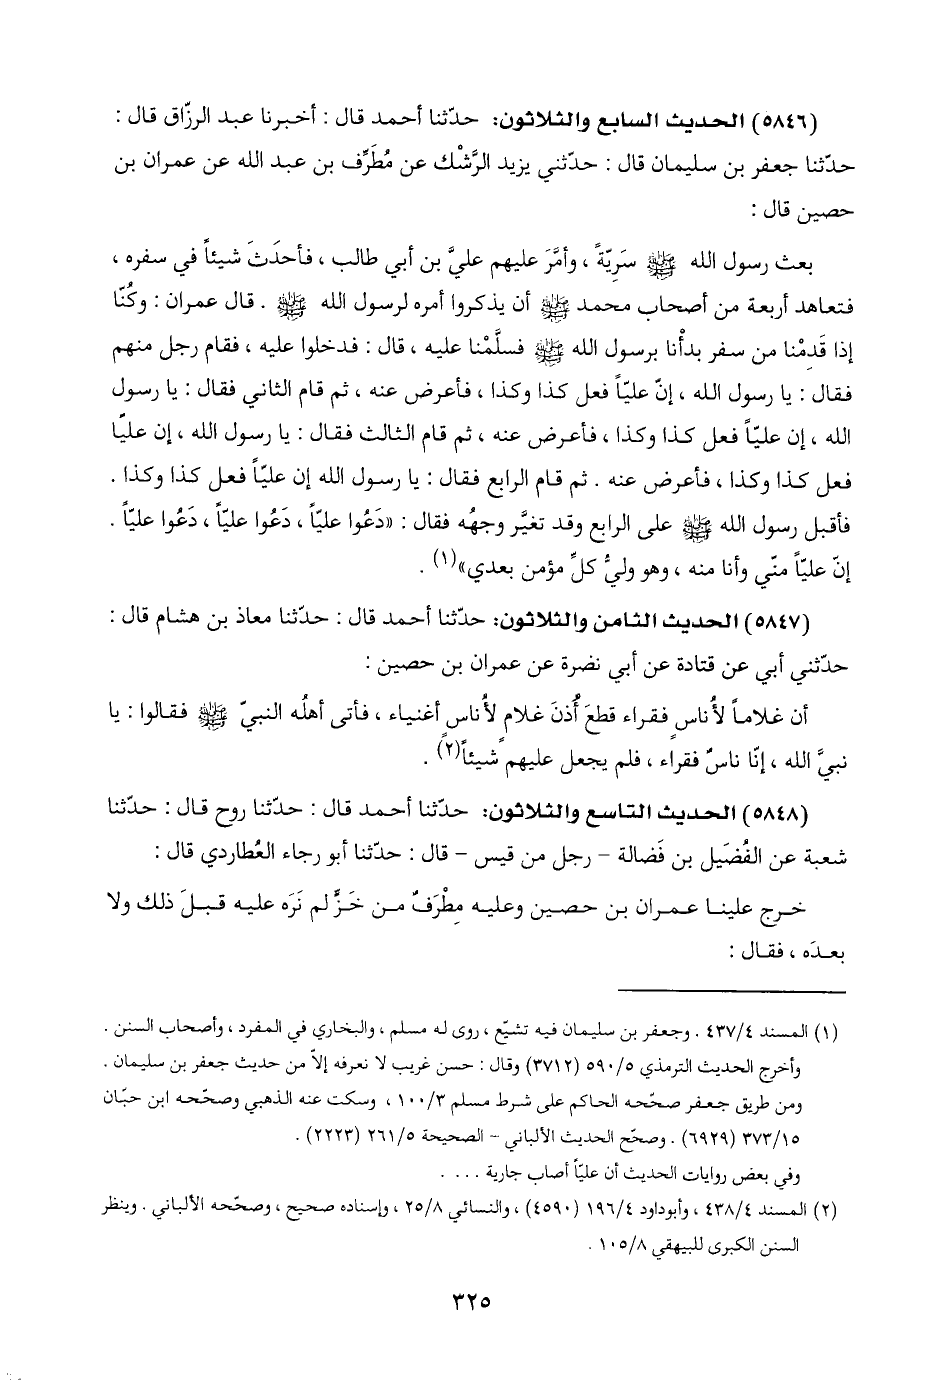 (٥٨٤٦) الحديث السابع والثلاثون: حدّثنا أحمد قال : أخبرنا عبد الرزّاق قال :
حدّثنا جعفر بن سليمان قال : حدّثني يزيد الرِّشْك عن مُطَرِّف بن عبد الله عن عمران بن
حصين قال :
بعث رسول الله ﷺ سَرِيّةً ، وأمَّرَ عليهم عليَّ بن أبي طالب ، فأحدَثَ شيئاً في سفره ،
فتعاهد أربعة من أصحاب محمد ﷺ أن يذكروا أمره لرسول الله ﷺ . قال عمران : وكُنّا
إذا قَدِمْنا من سفر بدأْنا برسول الله ﷺ فسلَّمْنا عليه ، قال : فدخلوا عليه ، فقام رجل منهم
فقال : يا رسول الله ، إنّ عليّاً فعل كذا وكذا ، فأعرض عنه ، ثم قام الثاني فقال : يا رسول
الله ، إن عليّاً فعل كذا وكذا ، فأعرض عنه ، ثم قام الثالث فقال : يا رسول الله ، إن عليّاً
فعل كذا وكذا ، فأعرض عنه . ثم قام الرابع فقال : يا رسول الله إن عليّاً فعل كذا وكذا .
فأقبل رسول الله ﷺ على الرابع وقد تغيَّر وجهُه فقال : «دَعُوا عليّاً ، دَعُوا عليّاً ، دَعُوا عليّاً .
إنّ عليّاً منّي وأنا منه ، وهو وليُّ كلِّ مؤمن بعدي»(١) .
(٥٨٤٧) الحديث الثامن والثلاثون: حدّثنا أحمد قال : حدّثنا معاذ بن هشام قال :
حدّثني أبي عن قتادة عن أبي نضرة عن عمران بن حصين :
أن غلاماً لأُناسٍ فقراء قطعَ أُذنَ غلامٍ لأُناسٍ أغنياء ، فأتى أهلُه النبيّ ﷺ فقالوا : يا
نبيَّ الله ، إنّا ناسٌ فقراء ، فلم يجعل عليهم شيئاً(٢) .
(٥٨٤٨) الحديث التاسع والثلاثون: حدّثنا أحمد قال : حدّثنا روح قال : حدّثنا
شعبة عن الفُضَيل بن فَضالة - رجل من قيس - قال : حدّثنا أبو رجاء العُطاردي قال :
خرج علينا عمران بن حصين وعليه مِطْرَفٌ من خَزٍّ لم نَرَه عليه قبلَ ذلك ولا
بعدَه ، فقال :
(١) المسند ٤٣٧/٤ . وجعفر بن سليمان فيه تشيّع ، روى له مسلم ، والبخاري في المفرد ، وأصحاب السنن .
وأخرج الحديث الترمذي ٥٩٠/٥ (٣٧١٢) وقال : حسن غريب لا نعرفه إلاّ من حديث جعفر بن سليمان .
ومن طريق جعفر صحّحه الحاكم على شرط مسلم ١٠٠/٣ ، وسكت عنه الذهبي وصحّحه ابن حبّان
٣٧٣/١٥ (٦٩٢٩) . وصحّح الحديث الألباني - الصحيحة ٢٦١/٥ (٢٢٢٣) .
وفي بعض روايات الحديث أن عليّاً أصاب جارية ....
(٢) المسند ٤٣٨/٤ ، وأبوداود ١٩٦/٤ (٤٥٩٠) ، والنسائي ٢٥/٨ ، وإسناده صحيح ، وصحّحه الألباني . وينظر
السنن الكبرى للبيهقي ١٠٥/٨ .
٣٢٥